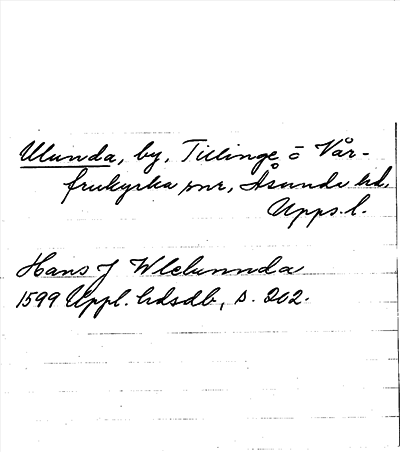 Ulunda, by, Tillinge o Vår-
frukyrka snr, Åsunda hd,
Upps. l.
Hans J Wlelunnda
1599 Uppl. hdsdb, s. 202.